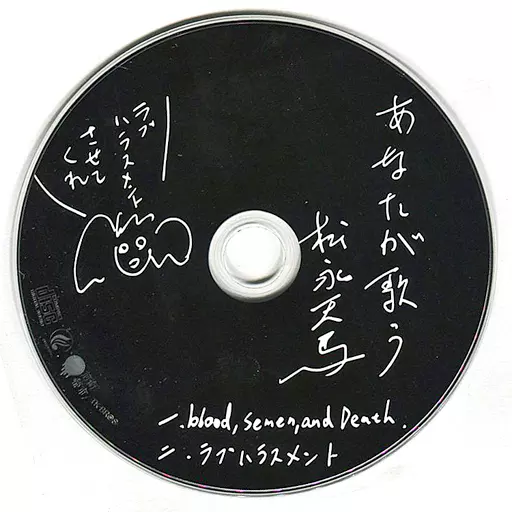 あなたが歌う
松永天馬
ラブ
ハラスメント
させて
くれ
一.blood, semen, and Death.
二.ラブハラスメント